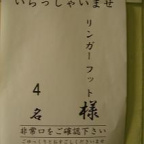 いらっしゃいませ
リンガーフット 様
4名
非常口をご確認下さい